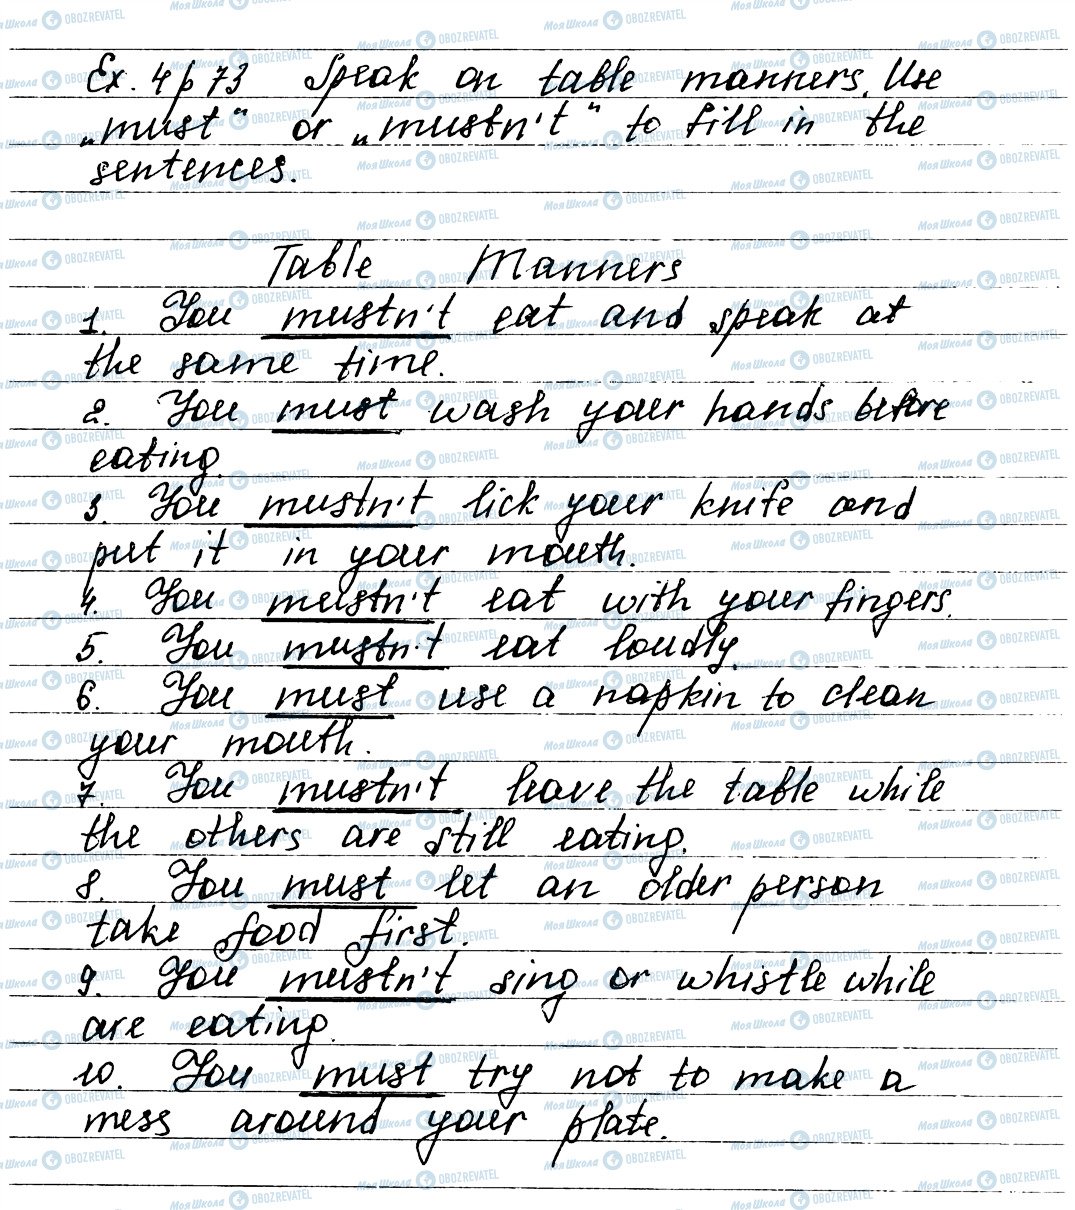 Ex. 4 p 73 Speak on table manners. Use
„must“ or „mustn't“ to fill in the
sentences.
Table Manners
1. You mustn't eat and speak at
the same time.
2. You must wash your hands before
eating.
3. You mustn't lick your knife and
put it in your mouth.
4. You mustn't eat with your fingers.
5. You mustn't eat loudly.
6. You must use a napkin to clean
your mouth.
7. You mustn't leave the table while
the others are still eating.
8. You must let an older person
take food first.
9. You mustn't sing or whistle while
are eating.
10. You must try not to make a
mess around your plate.
МояШкола OBOZREVATEL